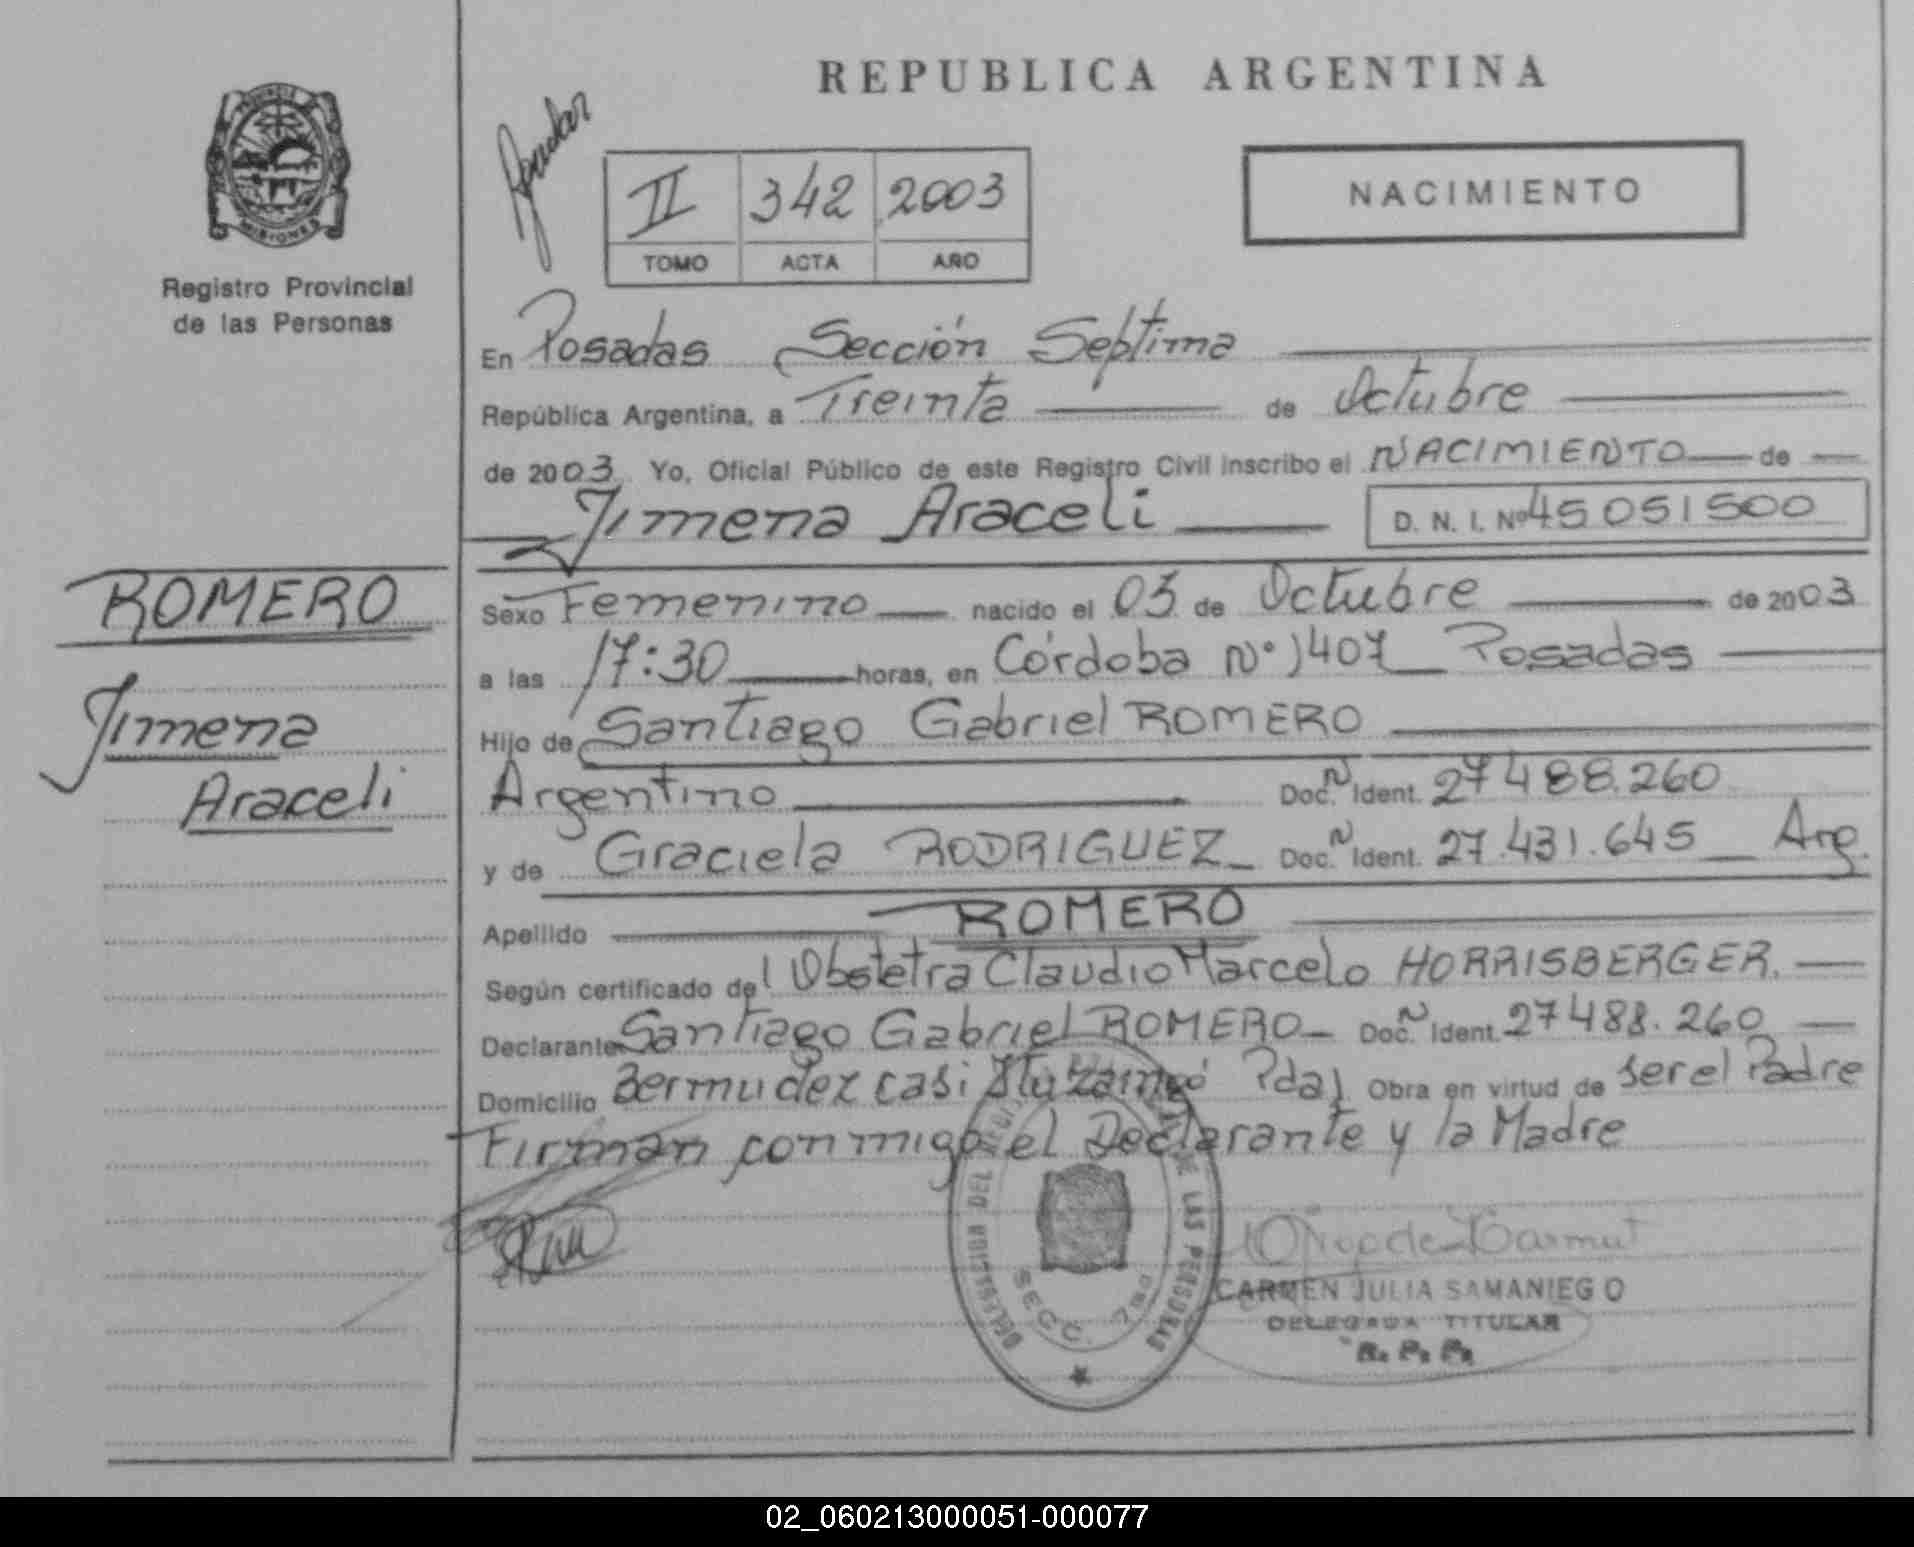 REPUBLICA ARGENTINA
PROVINCIA DE
MISIONES
Registro Provincial
de las Personas
II 342 2003
TOMO ACTA AÑO
NACIMIENTO
En Posadas Sección Septima
República Argentina, a Treinta de Octubre
de 2003 Yo, Oficial Público de este Registro Civil inscribo el NACIMIENTO de
Jimena Araceli D. N. I. Nº 45051500
ROMERO
Jimena
Araceli
Sexo Femenino nacido el 03 de Octubre de 2003
a las 17:30 horas, en Córdoba Nº 1407 Posadas
Hijo de Santiago Gabriel ROMERO
Argentino Doc.N Ident. 27488.260
y de Graciela RODRIGUEZ Doc.N Ident. 27.431.645 Arg.
Apellido ROMERO
Según certificado del Obstetra Claudio Marcelo HORRISBERGER.
Declarante Santiago Gabriel ROMERO Doc.N Ident. 27488.260
Domicilio Bermudez casi Ituzaingó Pdas Obra en virtud de ser el Padre
Firman conmigo el Declarante y la Madre
DELEGACION DEL REGISTRO DE LAS PERSONAS
SECC. 7ma
CARMEN JULIA SAMANIEGO
DELEGADA TITULAR
R. P. P.
02_060213000051-000077